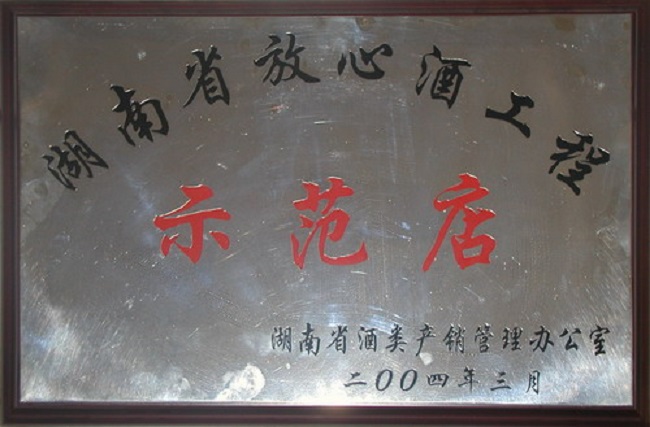 湖南省放心酒工程
示范店
湖南省酒类产销管理办公室
二00四年三月